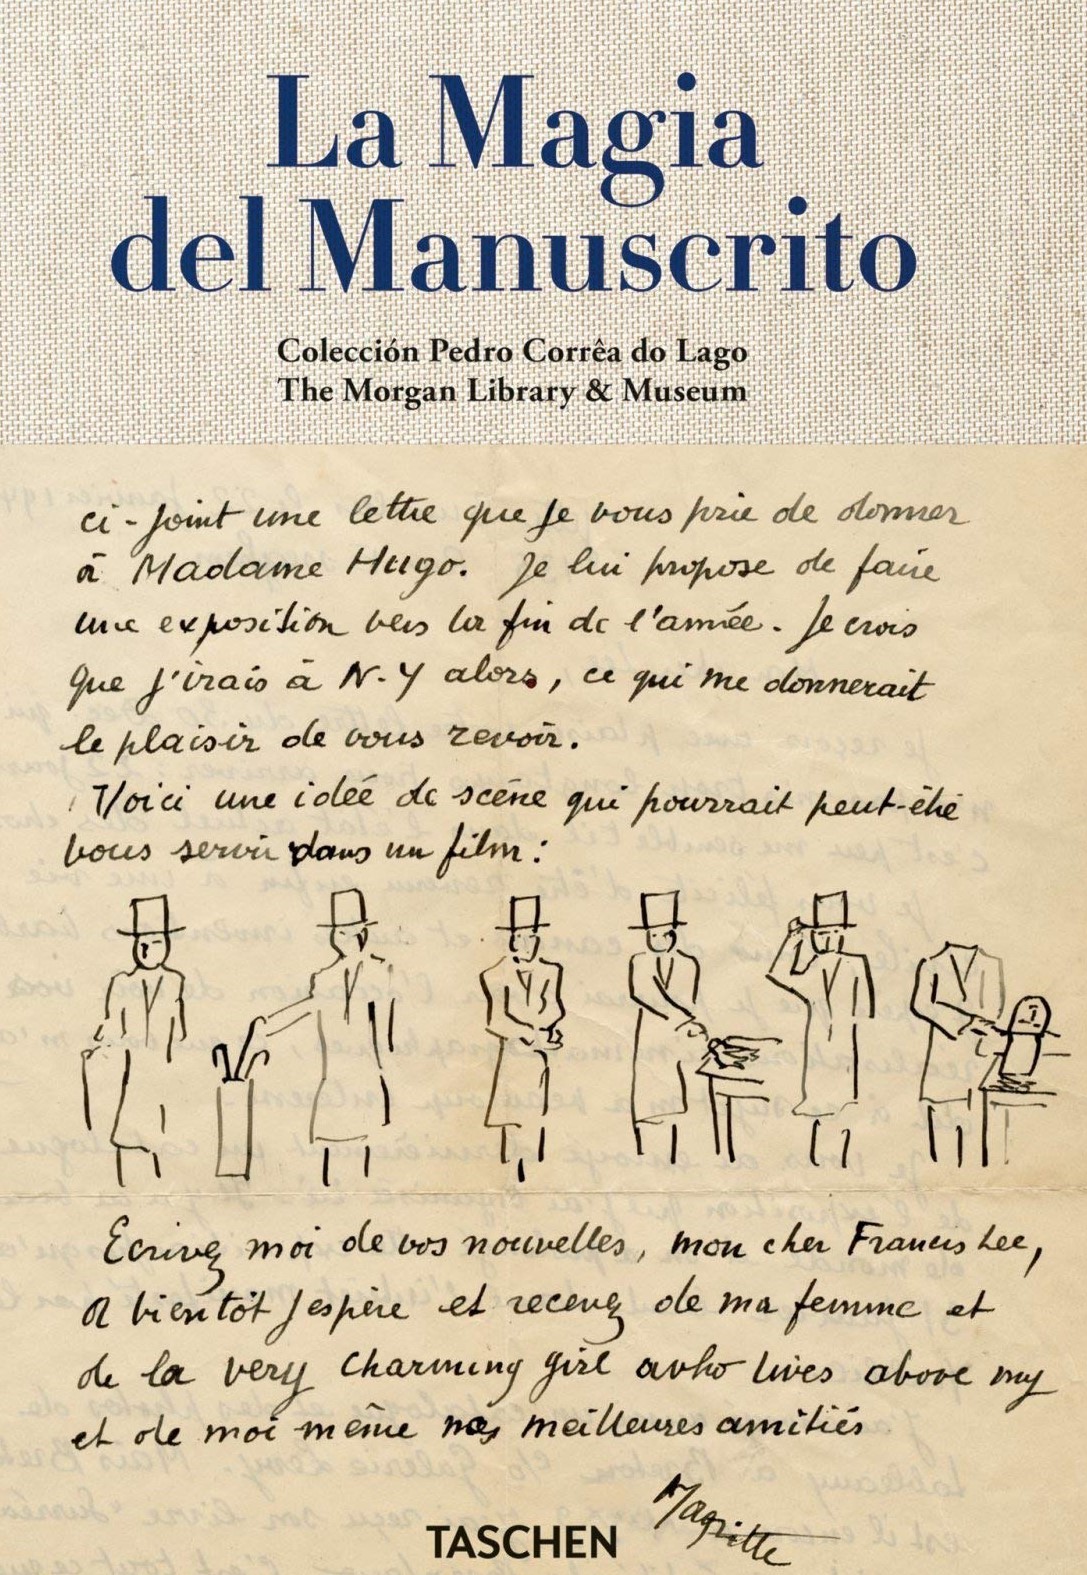 La Magia
del Manuscrito
Colección Pedro Corrêa do Lago
The Morgan Library & Museum
ci-joint une lettre que je vous prie de donner
à Madame Hugo. Je lui propose de faire
une exposition vers la fin de l'année. Je crois
que j'irais à N.Y alors, ce qui me donnerait
le plaisir de vous revoir.
Voici une idée de scène qui pourrait peut-être
vous servir dans un film:
Ecrivez moi de vos nouvelles, mon cher Francis Lee,
à bientôt j'espère et recevez de ma femme et
de la very charming girl who lives above my
et de moi même nos meilleures amitiés
Magritte
TASCHEN